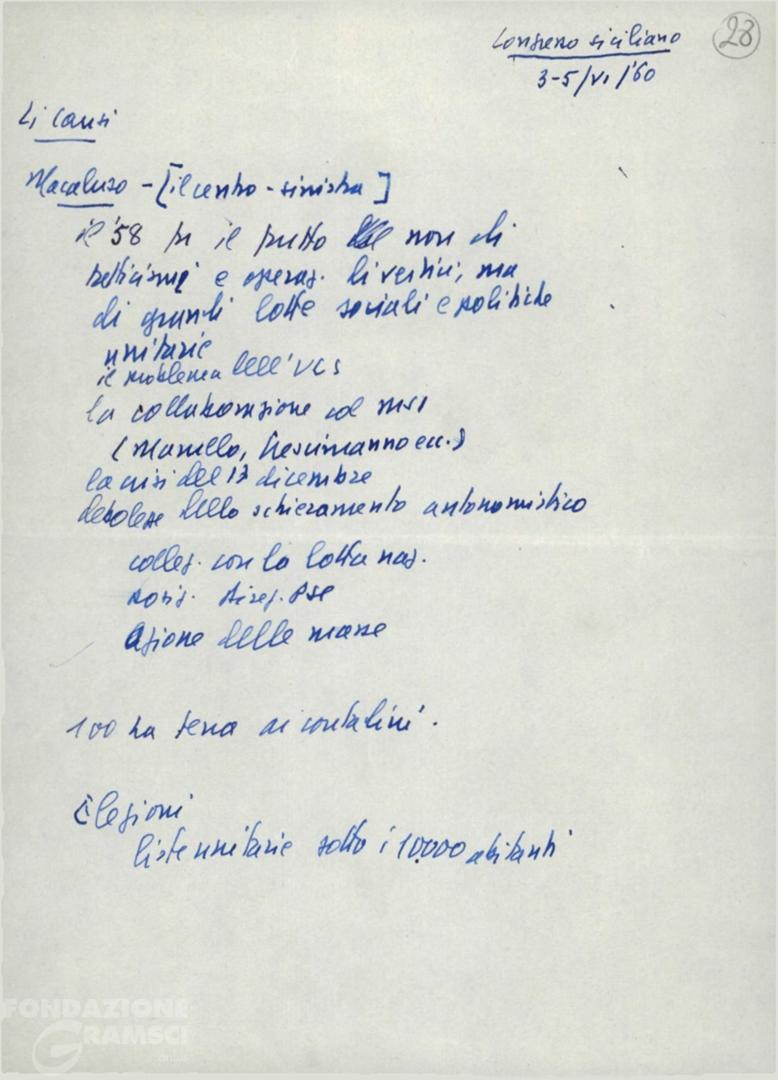 Congresso siciliano
28
3-5/VI/'60
Li Causi
Macaluso - [il centro-sinistra]
il '58 fu il frutto non di
tatticismi e operaz. di vertici, ma
di grandi lotte sociali e politiche
unitarie
il problema dell'UCS
la collaborazione col MSI
(Marullo, Crescimanno ecc.)
la crisi del 12 dicembre
debolezze dello schieramento autonomistico
colleg. con la lotta naz.
posiz. direz. PSI
Azione delle masse
100 ha terra ai contadini.
Elezioni
liste unitarie sotto i 10.000 abitanti
FONDAZIONE
GRAMSCI